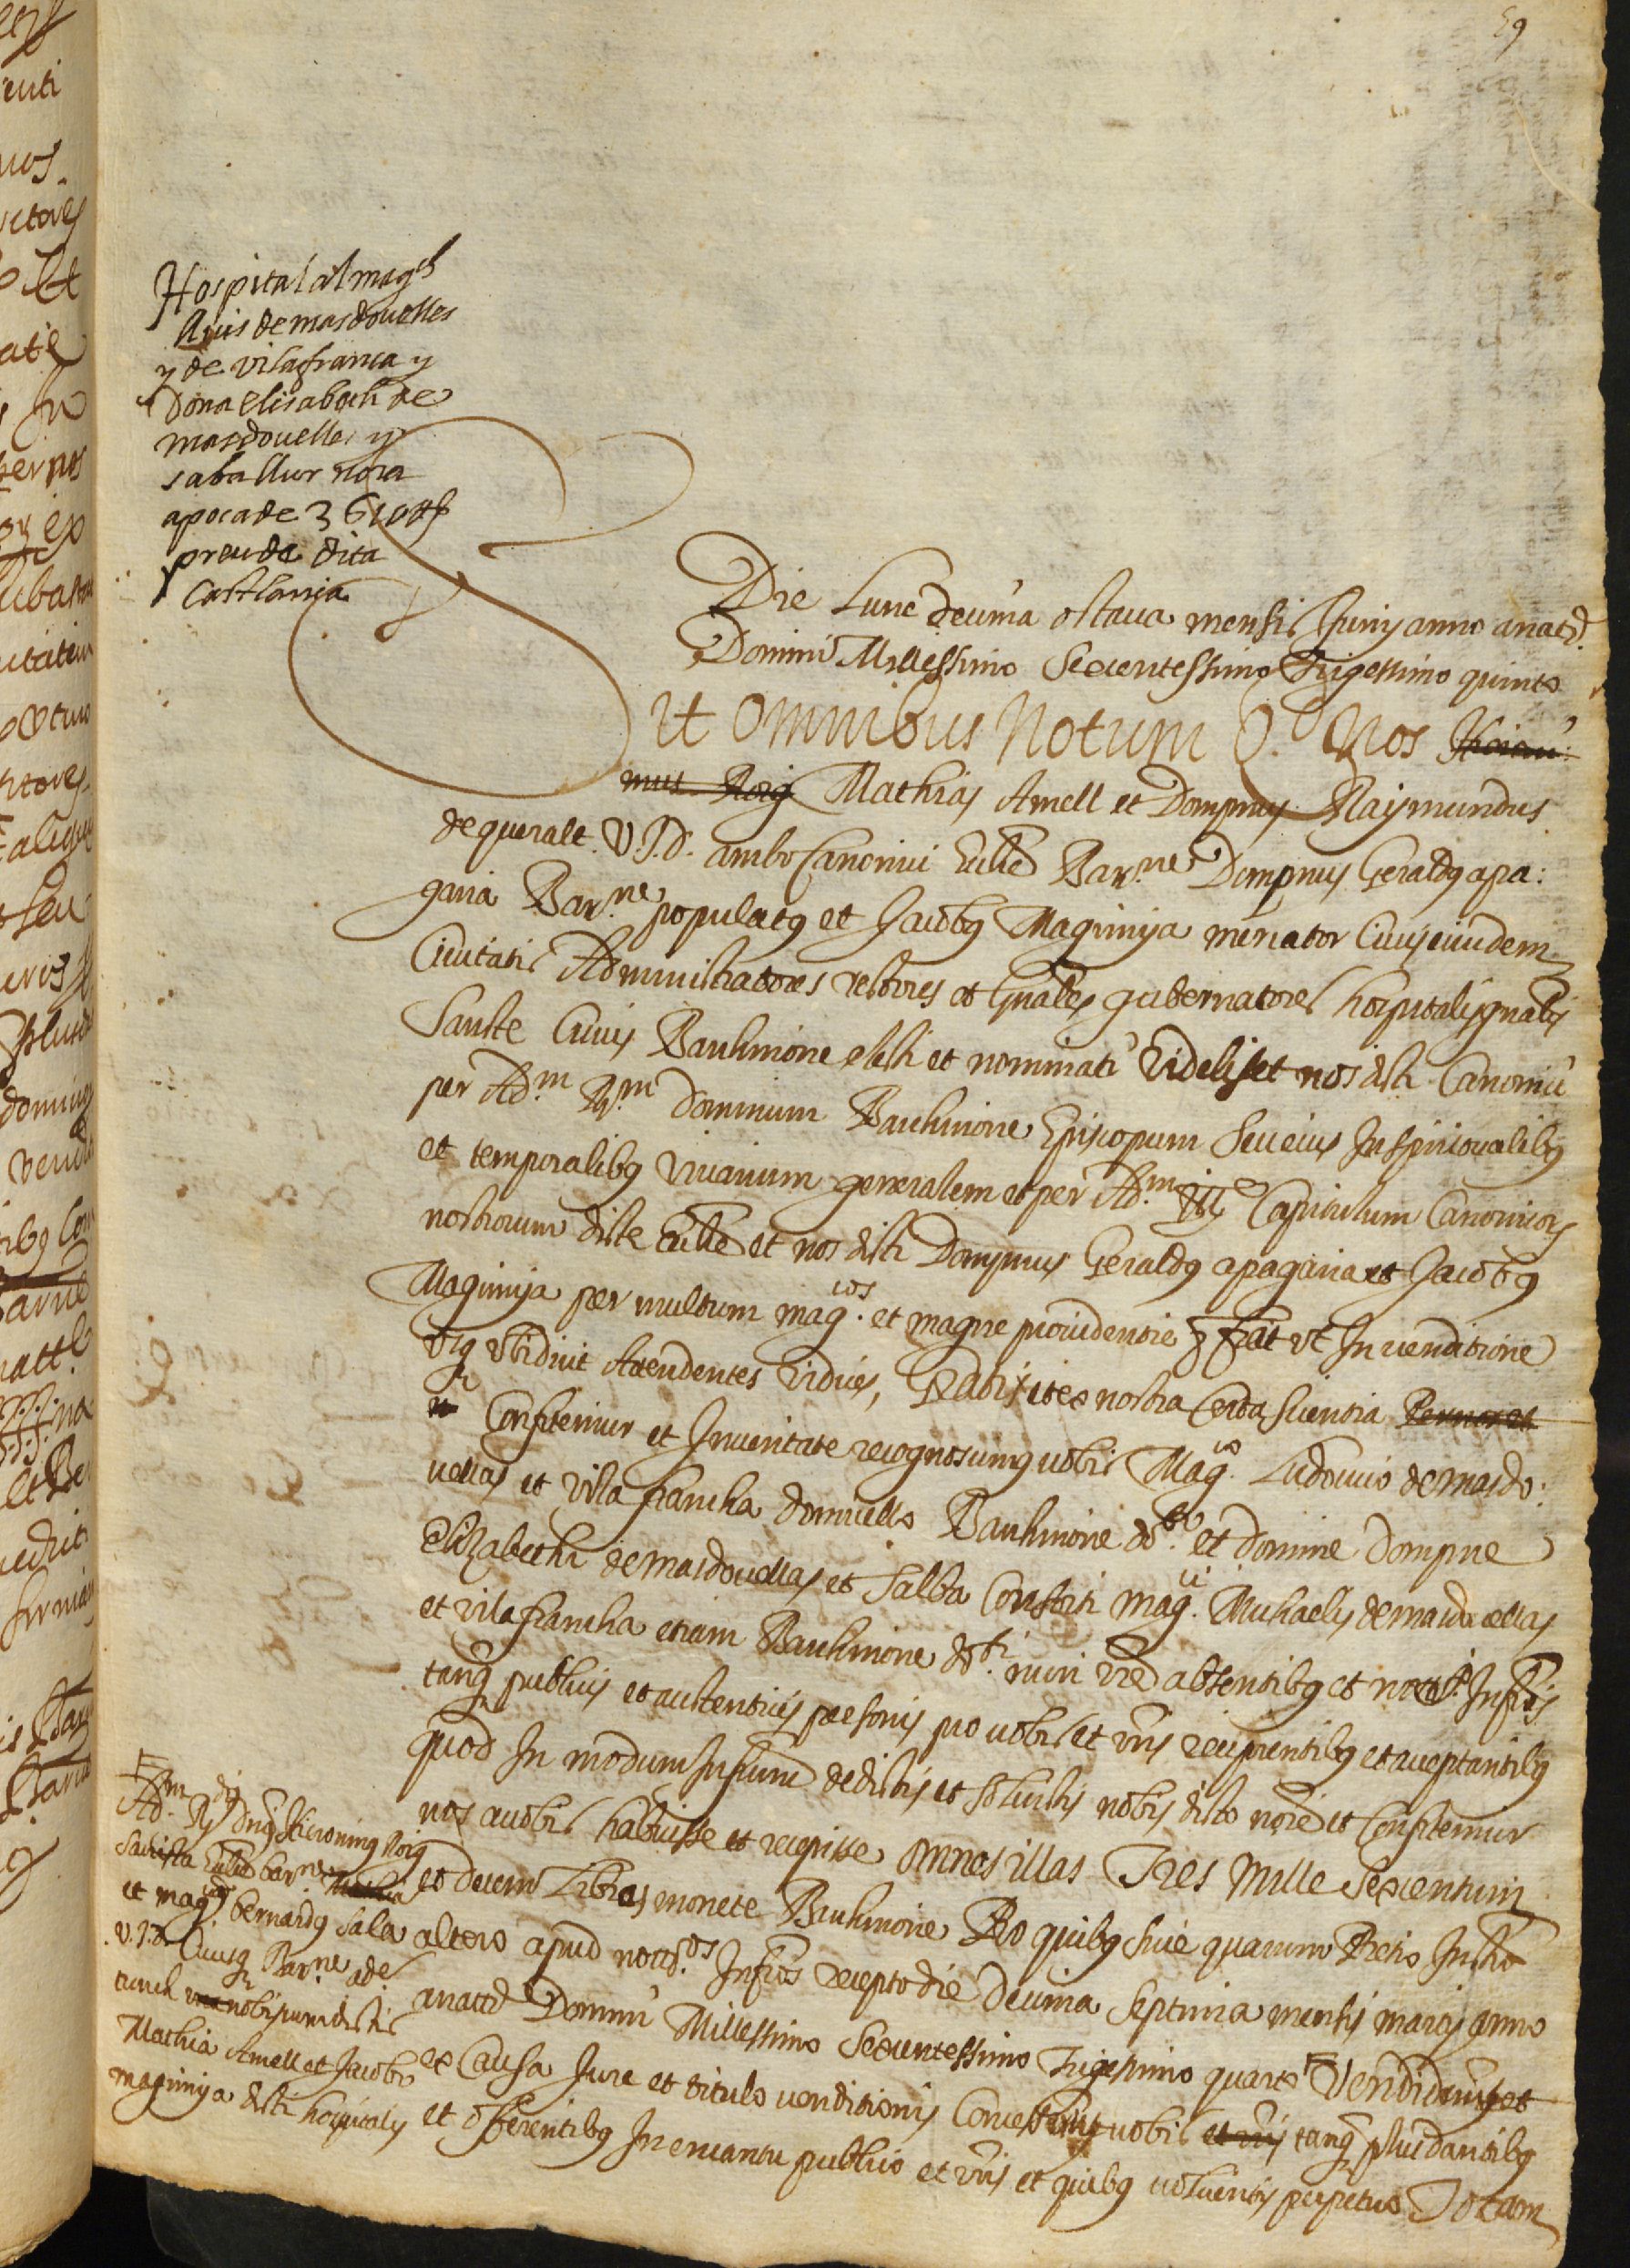 59
Hospital al magch
lluis de masdouelles
y de vilafranca y
Dona elisabeth de
masdouelles y
saballur nora
apoca de 3610 ll
preu de dita
Castlania
Die Lune decima octaua mensis Junij anno anatd.
Domini Millessimo Sexcentessimo Trigessimo quinto
Ut omnibus Notum &. Nos Hieroni:
mus Roig Mathias Amell et Dompnus Raymundus
de queralt V.J.D. ambo Canonici Eccl̄ie Bar.ne Dompnus Geraldus apa:
garia Bar.ne populatus et Jacobus Maginya mercator Ciuis eiusdem
Ciuitatis Administratores rectores et gnāles gubernatores hospitalis gnālis
Sancte Crucis Barchinone electi et nominati Videliset nos dicti Canonici
per Ad.m R.m Dominum Barchinone Episcopum Seu eius In spiritualibus
et temporalibus vicarium generalem et per Ad.m Ill.e Capitulum Canonicorum
nostrorum dicte Eccl̄ie et nos dicti Dompnus Geraldus apagaria et Jacobus
Maginya per multum mag.cos et magne prouidentie & fiat ut In venditione
usq Attendentes vidues, Gratis et ex nostra Certa scientia
Confitemur et In ueritate recognoscimus uobis Mag.co Ludouico de masdo:
uellas et vila francha domicello Barchinone do.to et domine dompne
Elizabethi de masdouellas et Salba Consorti mag.ci Michaelis de masdouellas
et vilafrancha etiam Barchinone do.ti nurui vr̄e absentibus et not.s Infr̄is
tanq publicis et autenticis personis pro uobis et vr̄is recipientibus et acceptantibus
quod In modum Infr̄um dedistis et soluistis nobis dicto noīe et Confitemur
nos a uobis habuisse et recepisse omnes illas Tres mille Sexcentum
et decem Libras monete Barchinone Pro quibus siue quarum Pretio In
altero apud not.os Infr̄os recepto die decima septima mensis marcij anno
anatd Domini Millessimo Sexcentessimo Trigessimo quarto Vendidimus et
ex Causa Jure et titulo venditionis Concessimus uobis et vr̄is tanq plus dantibus
et offerentibus In encantu publico et vr̄is et quibus uolueritis perpetuo Totam
Ad.m R.dus dn̄s Hieronimus Roig
Sacrista Eccl̄ie bar.ne Mathia
et mag.cus bernardus Sala
V.J.D. Ciuis Bar.ne ade
tunch una nobiscum dictis
Mathia Amell et Jacobo
maginya dicti hospitalis